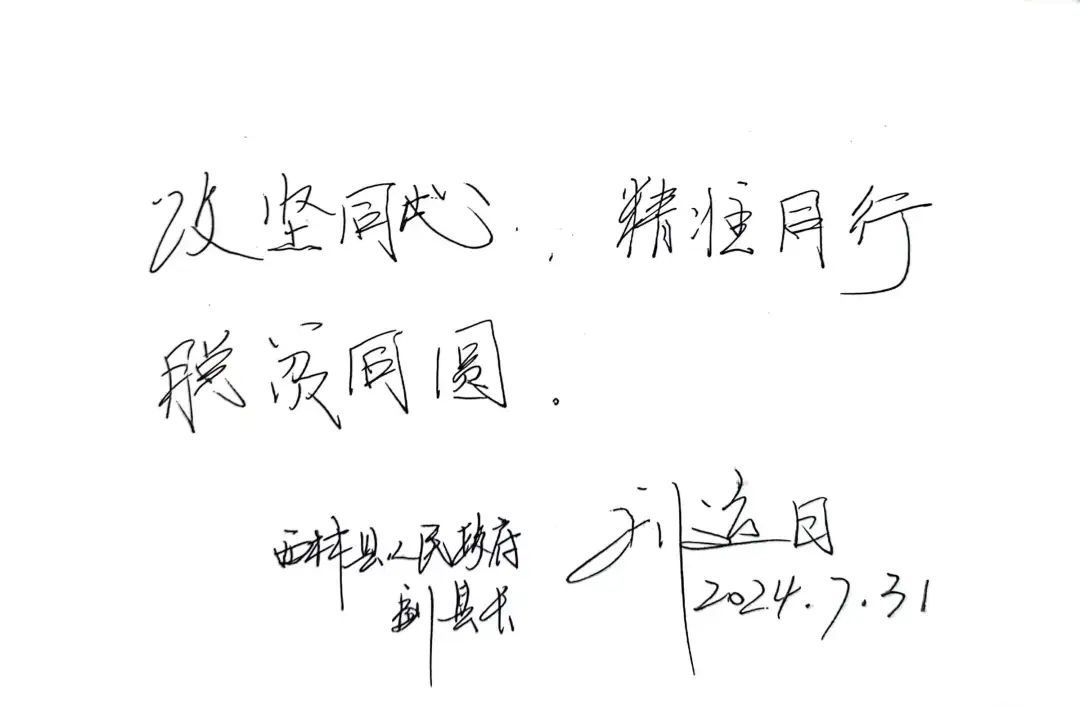 攻坚同心，精准同行
脱贫同圆。
西林县人民政府
副县长
2024.7.31